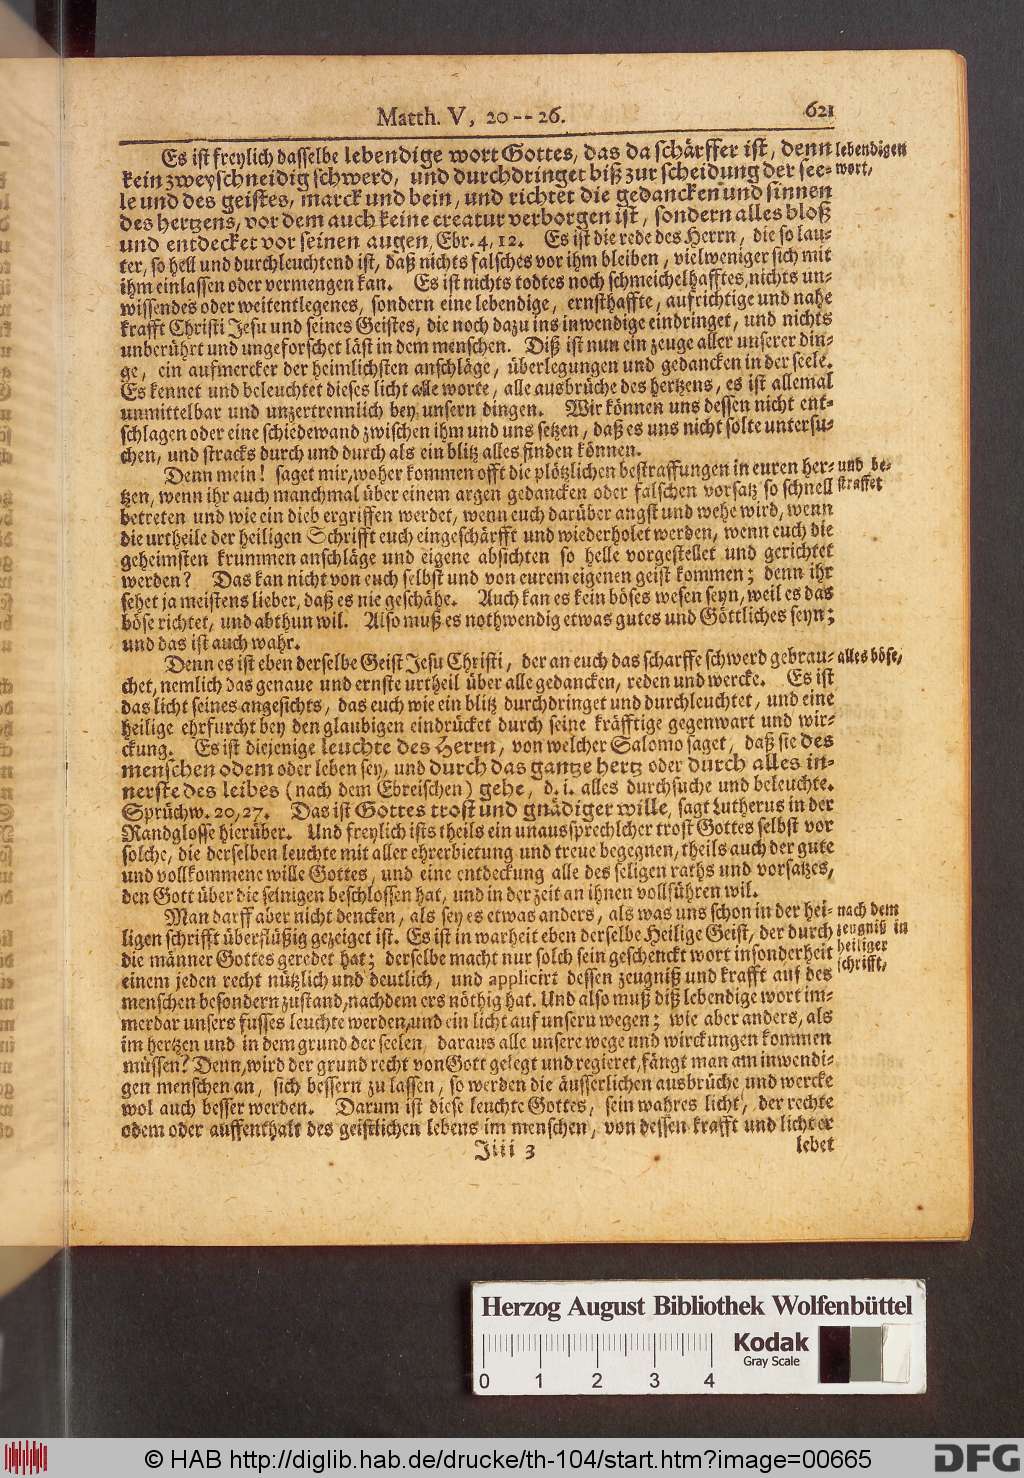 Matth. V, 20--26. 621
Es ist freylich dasselbe lebendige wort Gottes, das da schärffer ist, denn lebendigen
kein zweyschneidig schwerd, und durchdringet biß zur scheidung der see- wort,
le und des geistes, marck und bein, und richtet die gedancken und sinnen
des hertzens, vor dem auch keine creatur verborgen ist, sondern alles bloß
und entdecket vor seinen augen, Ebr. 4, 12. Es ist die rede des Herrn, die so lau-
ter, so hell und durchleuchtend ist, daß nichts falsches vor ihm bleiben, vielweniger sich mit
ihm einlassen oder vermengen kan. Es ist nichts todtes noch schmeichelhafftes, nichts un-
wissendes oder weitentlegenes, sondern eine lebendige, ernsthaffte, aufrichtige und nahe
krafft Christi Jesu und seines Geistes, die noch dazu ins inwendige eindringet, und nichts
unberührt und ungeforschet läst in dem menschen. Diß ist nun ein zeuge aller unserer din-
ge, ein aufmercker der heimlichsten anschläge, überlegungen und gedancken in der seele.
Es kennet und beleuchtet dieses licht alle worte, alle ausbrüche des hertzens, es ist allemal
unmittelbar und unzertrennlich bey unsern dingen. Wir können uns dessen nicht ent-
schlagen oder eine schiedewand zwischen ihm und uns setzen, daß es uns nicht solte untersu-
chen, und stracks durch und durch als ein blitz alles finden können.
Denn mein! saget mir, woher kommen offt die plötzlichen bestraffungen in euren her- und be-
tzen, wenn ihr auch manchmal über einem argen gedancken oder falschen vorsatz so schnell straffet
betreten und wie ein dieb ergriffen werdet, wenn euch darüber angst und wehe wird, wenn
die urtheile der heiligen Schrifft euch eingeschärfft und wiederholet werden, wenn euch die
geheimsten krummen anschläge und eigene absichten so helle vorgestellet und gerichtet
werden? Das kan nicht von euch selbst und von eurem eigenen geist kommen; denn ihr
sehet ja meistens lieber, daß es nie geschähe. Auch kan es kein böses wesen seyn, weil es das
böse richtet, und abthun wil. Also muß es nothwendig etwas gutes und Göttliches seyn;
und das ist auch wahr.
Denn es ist eben derselbe Geist Jesu Christi, der an euch das scharffe schwerd gebrau- alles böse,
chet, nemlich das genaue und ernste urtheil über alle gedancken, reden und wercke. Es ist
das licht seines angesichts, das euch wie ein blitz durchdringet und durchleuchtet, und eine
heilige ehrfurcht bey den glaubigen eindrücket durch seine kräfftige gegenwart und wir-
ckung. Es ist diejenige leuchte des Herrn, von welcher Salomo saget, daß sie des
menschen odem oder leben sey, und durch das gantze hertz oder durch alles in-
nerste des leibes (nach dem Ebreischen) gehe, d. i. alles durchsuche und beleuchte.
Sprüchw. 20, 27. Das ist Gottes trost und gnädiger wille, sagt Lutherus in der
Randglosse hierüber. Und freylich ists theils ein unaussprechlcher trost Gottes selbst vor
solche, die derselben leuchte mit aller ehrerbietung und treue begegnen, theils auch der gute
und vollkommene wille Gottes, und eine entdeckung alle des seligen raths und vorsatzes,
den Gott über die seinigen beschlossen hat, und in der zeit an ihnen vollführen wil.
Man darff aber nicht dencken, als sey es etwas anders, als was uns schon in der hei- nach dem
ligen schrifft überflüßig gezeiget ist. Es ist in warheit eben derselbe Heilige Geist, der durch zeugniß in
die männer Gottes geredet hat; derselbe macht nur solch sein geschenckt wort insonderheit heiliger
einem jeden recht nützlich und deutlich, und applicirt dessen zeugniß und krafft auf des schrifft,
menschen besondern zustand, nachdem ers nöthig hat. Und also muß diß lebendige wort im-
merdar unsers fusses leuchte werden, und ein licht auf unsern wegen; wie aber anders, als
im hertzen und in dem grund der seelen, daraus alle unsere wege und wirckungen kommen
müssen? Denn, wird der grund recht von Gott gelegt und regieret, fängt man am inwendi-
gen menschen an, sich bessern zu lassen, so werden die äusserlichen ausbrüche und wercke
wol auch besser werden. Darum ist diese leuchte Gottes, sein wahres licht, der rechte
odem oder auffenthalt des geistlichen lebens im menschen, von dessen krafft und licht er
Jiii 3 lebet
Herzog August Bibliothek Wolfenbüttel
Kodak
Gray Scale
0 1 2 3 4
© HAB http://diglib.hab.de/drucke/th-104/start.htm?image=00665
DFG